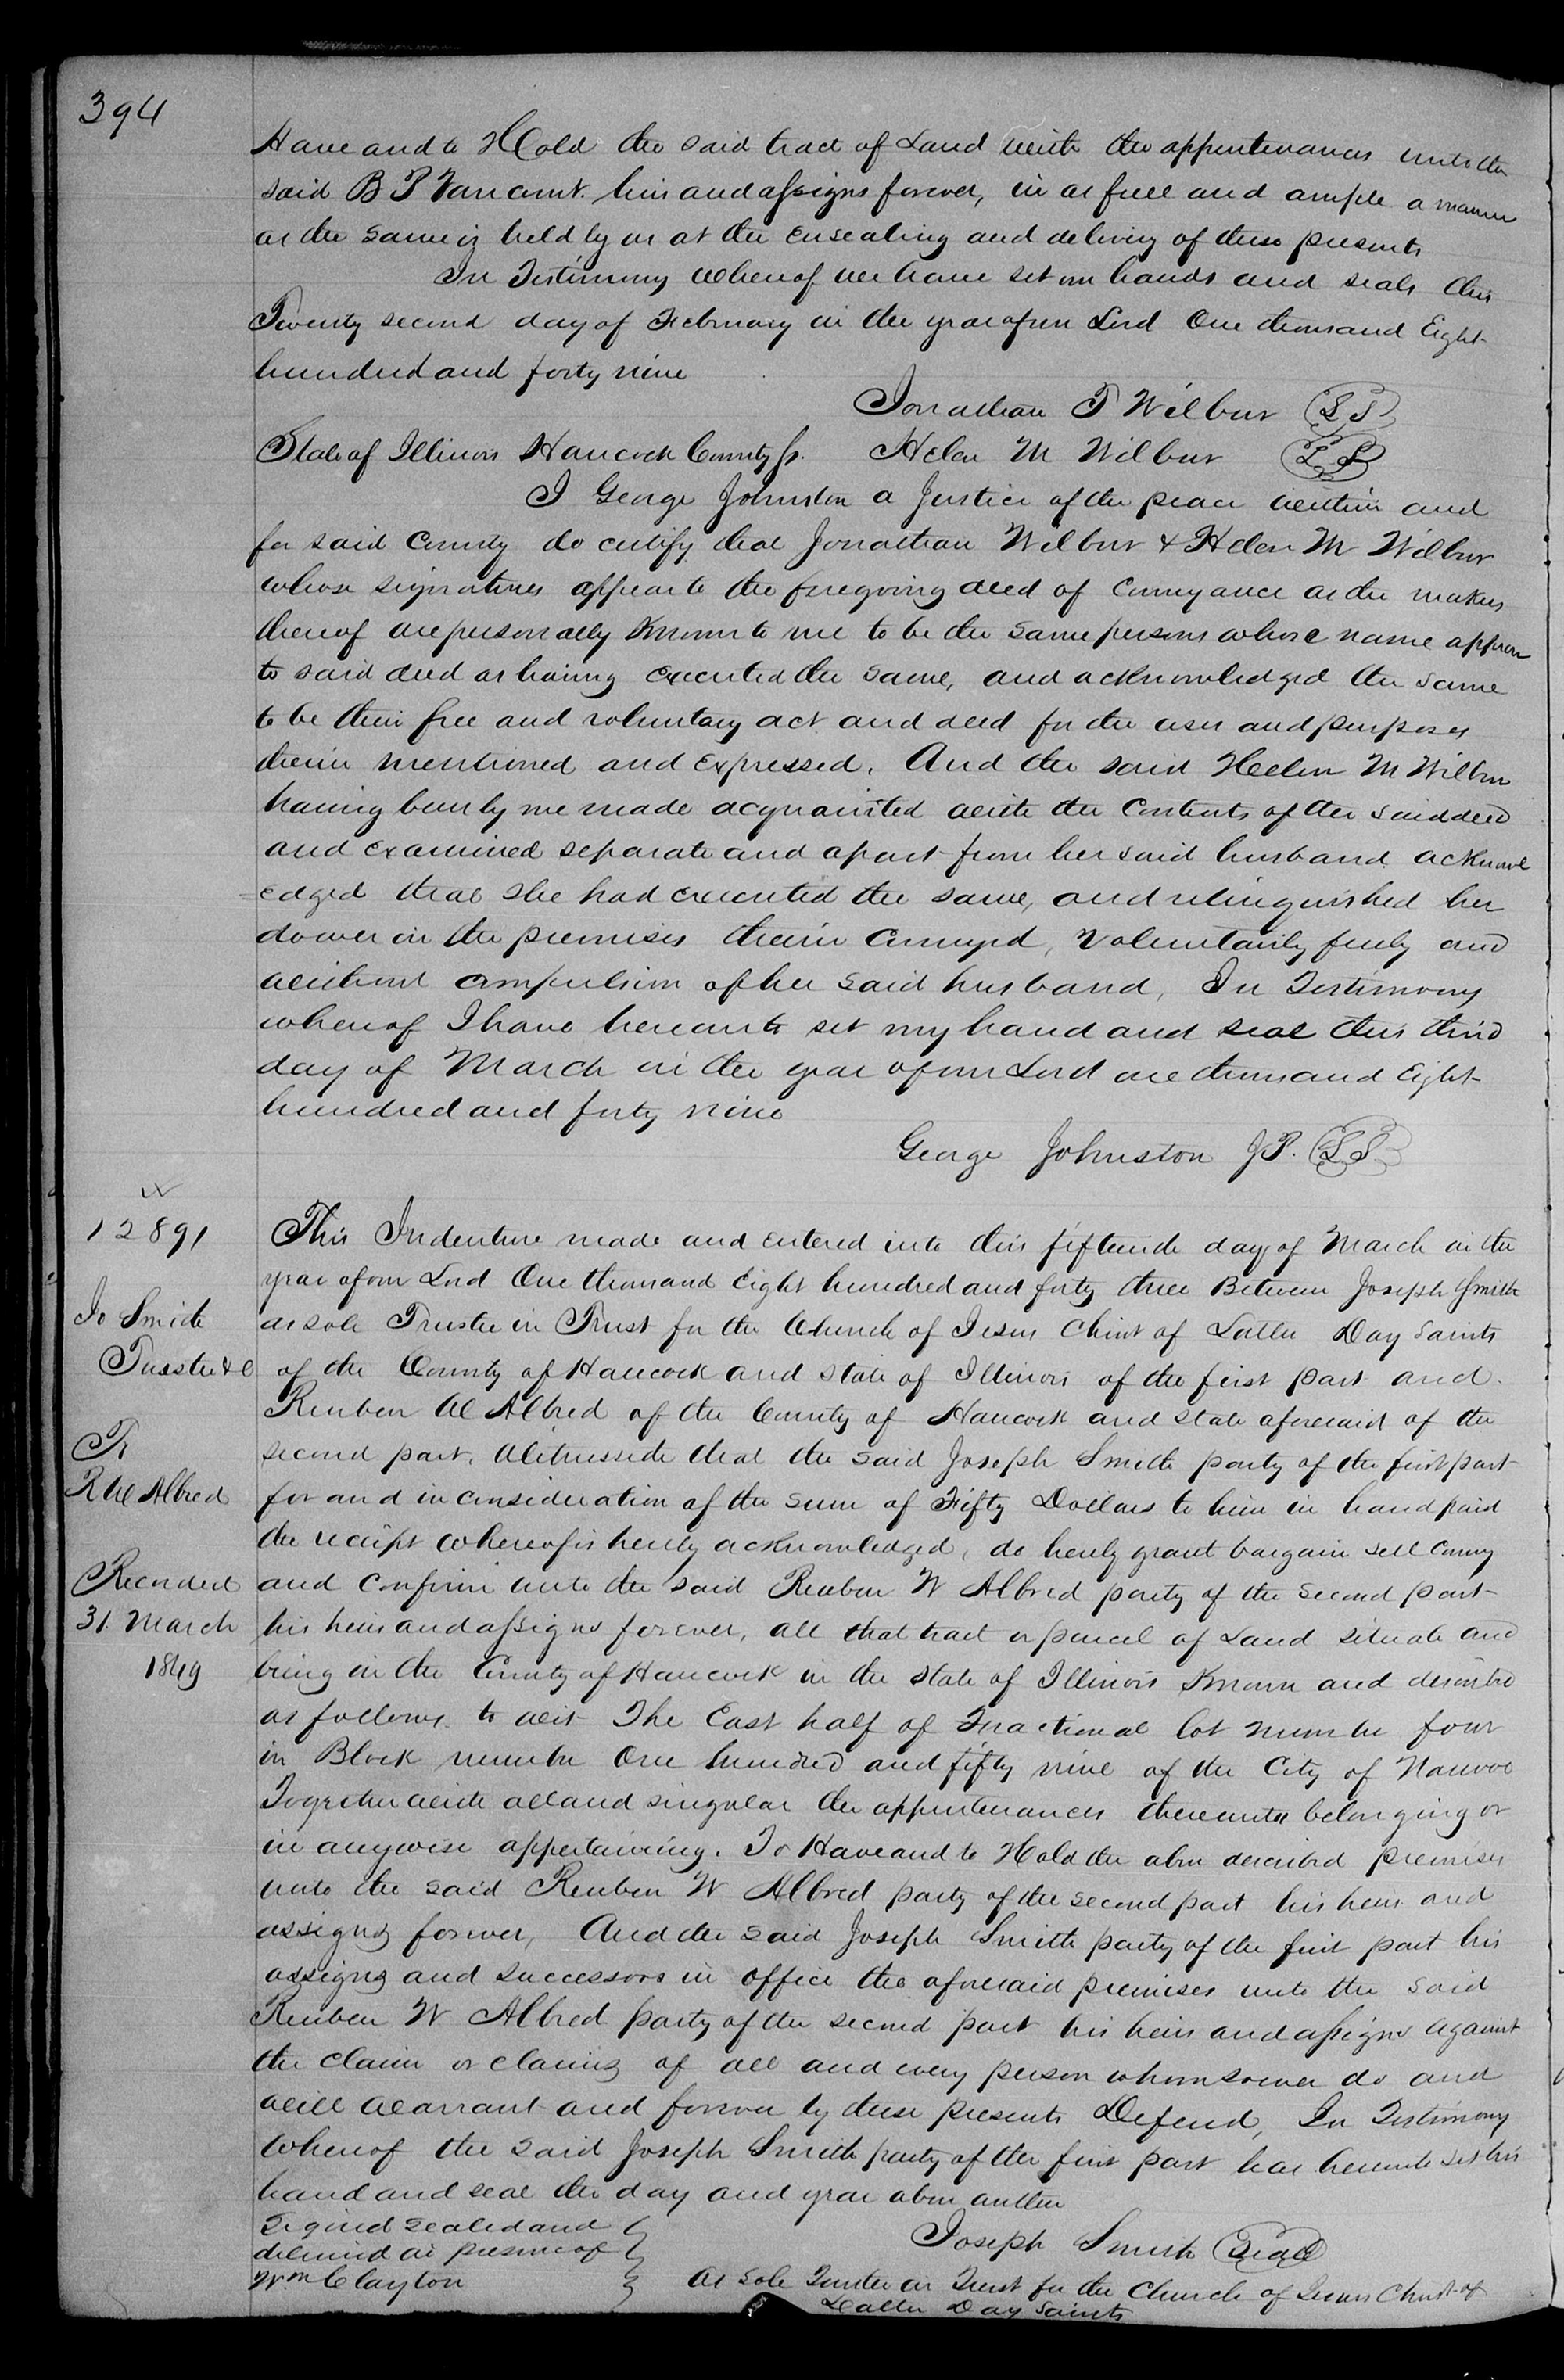 394
Have and to Hold the said tract of Land with the appurtenances unto the
said B P Vancourt. heirs and assigns forever, in as full and ample a manner
as the same is held by us at the ensealing and delivery of these presents
In Testimony whereof we have set our hands and seals this
Twenty second day of February in the year of our Lord One thousand Eight
hundred and forty nine
Jonathan T Wilbur LS
State of Illinois Hancock County ss. Helen M Wilbur LS
I George Johnston a Justice of the peace within and
for said County do certify that Jonathan Wilbur & Helen M Wilbur
whose signatures appear to the foregoing deed of Conveyance as the makers
thereof are personally Known to me to be the same persons whose name appear
to said deed as having executed the same, and acknowledged the same
to be their free and voluntary act and deed for the uses and purposes
therein mentioned and expressed. And the said Helen M Wilbur
having been by me made acquainted with the Contents of the said deed
and examined separate and apart from her said husband acknowl
=edged that she had executed the same, and relinquished her
dower in the premises therein Conveyed, Voluntarily freely and
without compulsion of her said husband, In Testimony
whereof I have hereunto set my hand and seal this third
day of March in the year of our Lord one thousand Eight
hundred and forty nine
George Johnston J.P. LS
12891
Jo Smith
Trustee &c
To
R W Allred
Recorded
31. March
1849
This Indenture made and entered into this fifteenth day of March in the
year of our Lord One thousand Eight hundred and forty three Between Joseph Smith
as sole Trustee in Trust for the Church of Jesus Christ of Latter Day Saints
of the County of Hancock and State of Illinois of the first part and
Reuben W Allred of the County of Hancock and State aforesaid of the
second part. Witnesseth that the said Joseph Smith party of the first part
for and in consideration of the sum of Fifty Dollars to him in hand paid
the receipt whereof is hereby acknowledged, do hereby grant bargain sell Convey
and Confirm unto the said Reuben W Allred party of the second part
his heirs and assigns forever, all that tract or parcel of Land situate and
being in the County of Hancock in the State of Illinois Known and described
as follows. to wit The East half of Fractional lot number four
in Block number One hundred and fifty nine of the City of Nauvoo
Together with all and singular the appurtenances thereunto belonging or
in anywise appertaining. To Have and to Hold the above described premises
unto the said Reuben W Allred party of the second part his heirs and
assigns forever, And the said Joseph Smith party of the first part his
assigns and successors in office the aforesaid premises unto the said
Reuben W Allred party of the second part his heirs and assigns against
the claim or claims of all and every person whomsoever do and
will Warrant and forever by these presents Defend, In Testimony
Whereof the said Joseph Smith party of the first part has hereunto set his
hand and seal the day and year above written
Signed sealed and
delivered in presence of
Wm Clayton
Joseph Smith Seal
As Sole Trustee in Trust for the Church of Jesus Christ of
Latter Day Saints